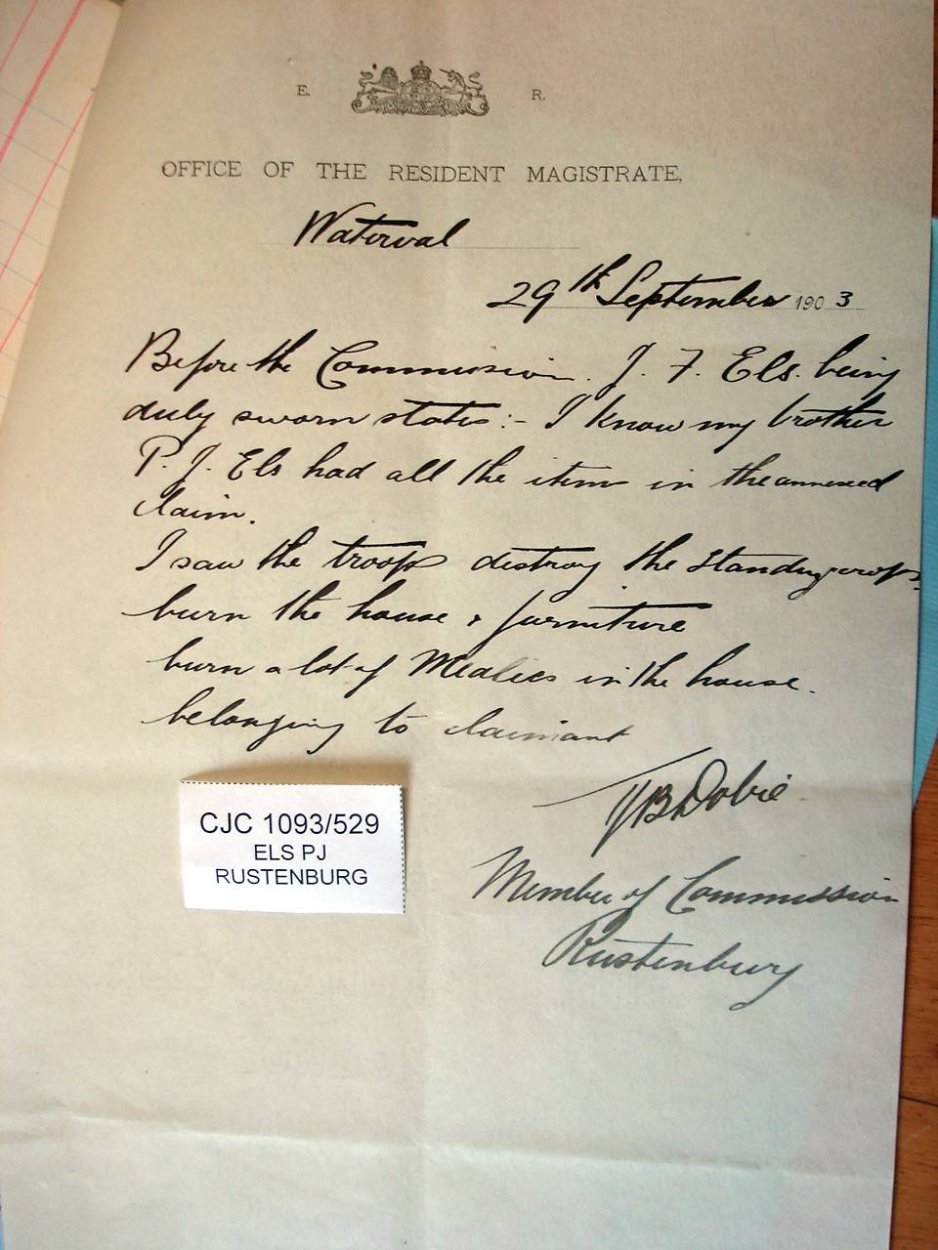 E. R.
OFFICE OF THE RESIDENT MAGISTRATE,
Waterval
29th September 1903
Before the Commission. J. F. Els. being
duly sworn states:- I know my brother
P. J. Els had all the items in the annexed
claim.
I saw the troops destroy the standing crops.
burn the house & furniture
burn a lot of Mealies in the house.
belonging to claimant
JB Dobie
Member of Commission
Rustenburg
CJC 1093/529
ELS PJ
RUSTENBURG